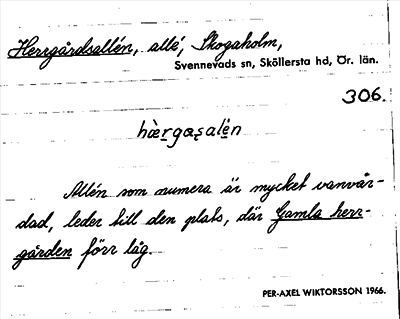 Herrgårdsallén, allé, Skogaholm,
Svennevads sn, Sköllersta hd, Ör. län.
306.
hæ̀rgaʂalèn
Allén som numera är mycket vanvår-
dad, leder till den plats, där Gamla herr-
gården förr låg.
PER-AXEL WIKTORSSON 1966.